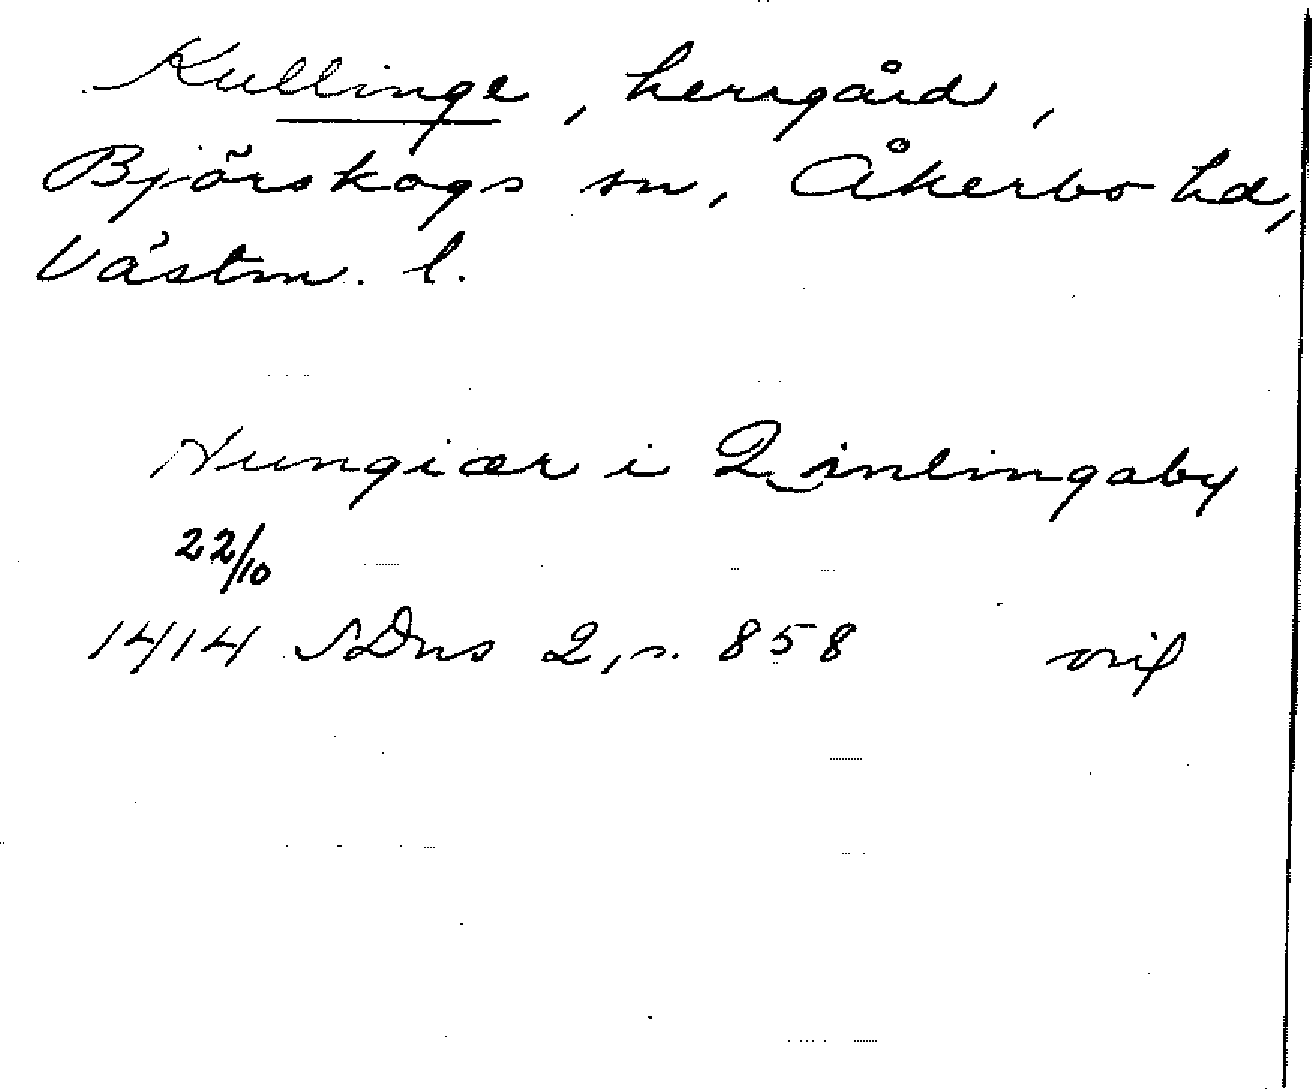 Kullinge, herrgård,
Björskogs sn, Åkerbo hd,
Västm. l.
Hungiær i Qinlingaby
22/10
1414 SDns 2, s. 858 orig